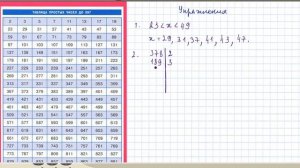 ТАБЛИЦА ПРОСТЫХ ЧИСЕЛ ДО 997
2 3 5 7 11 13 17 19
23 29 31 37 41 43 47 53
59 61 67 71 73 79 83 89
97 101 103 107 109 113 127 131
137 139 149 151 157 163 167 173
179 181 191 193 197 199 211 223
227 229 233 239 241 251 257 263
269 271 277 281 283 293 307 311
313 317 331 337 347 349 353 359
367 373 379 383 389 397 401 409
419 421 431 433 439 443 449 457
461 463 467 479 487 491 499 503
509 521 523 541 547 557 563 569
571 577 587 593 599 601 607 613
617 619 631 641 643 647 653 659
661 673 677 683 691 701 709 719
727 733 739 743 751 757 761 769
773 787 797 809 811 821 823 827
Упражнения
1. 23 < x < 49
x = 29, 31, 37, 41, 43, 47.
2. 378 2
189 3